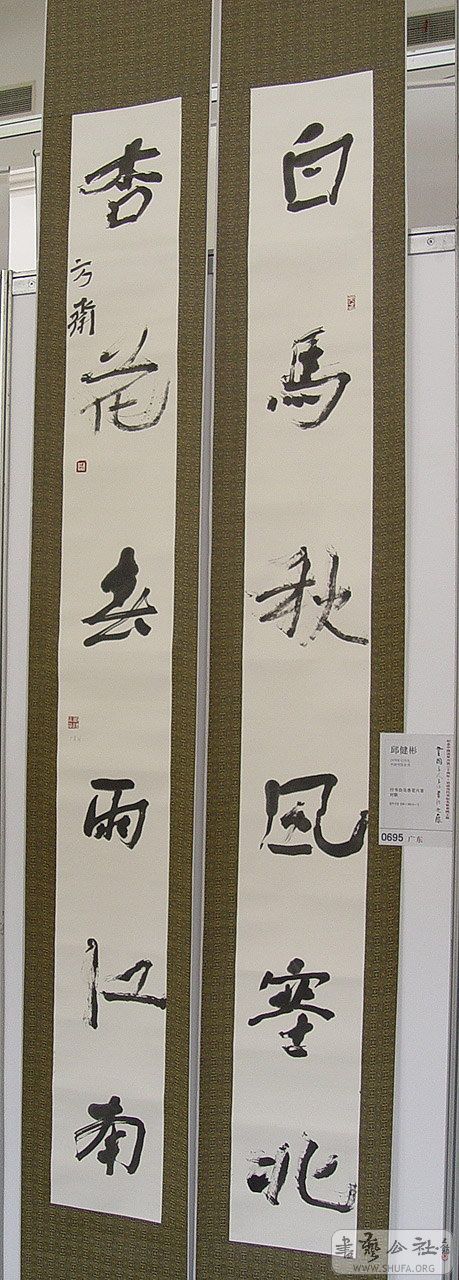 白馬秋風塞北
杏花春雨江南
邱健彬
0695 广东
書藝公社
WWW.SHUFA.ORG